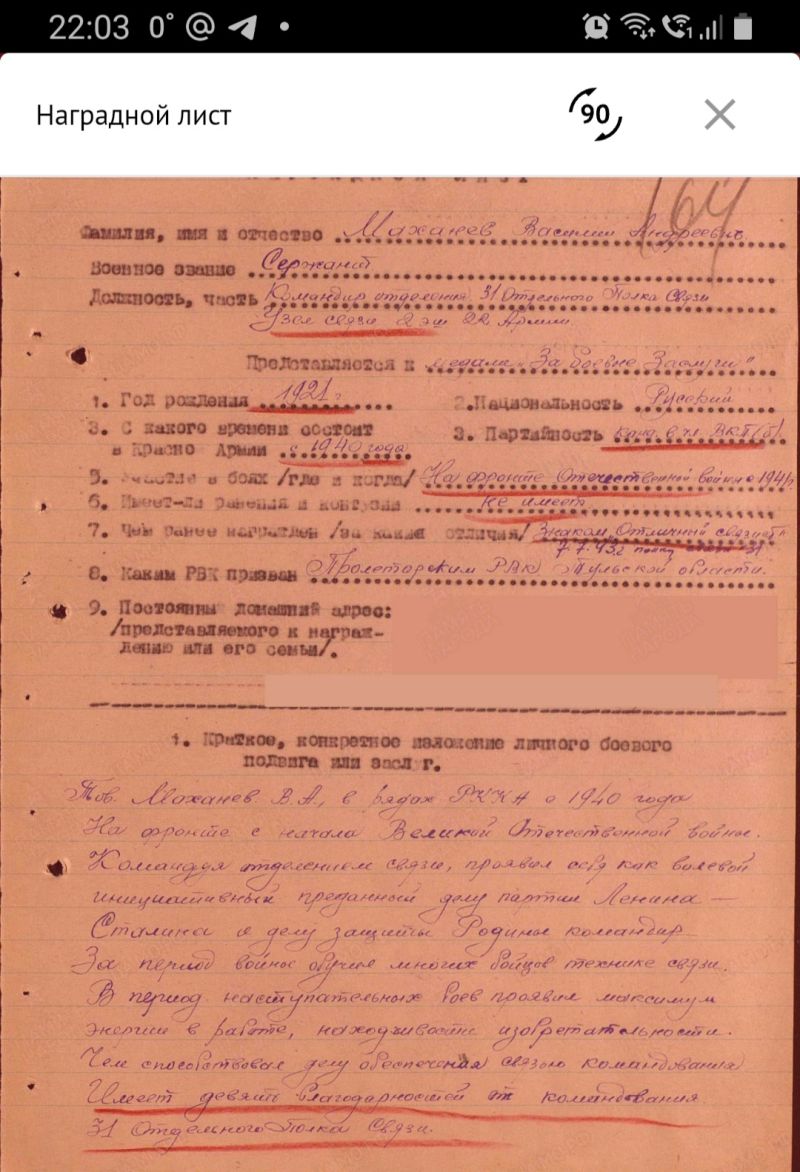 22:03 0° @
Наградной лист
90
164
Фамилия, имя и отчество Маханев Василий Андреевич
Военное звание Сержант
Должность, часть Командир отделения 31 Отдельного Полка Связи
Узел связи 2 эш 22 Армии
Представляется к медали „За боевые Заслуги"
1. Год рождения 1921 г 2.Национальность Русский
3. С какого времени состоит
в Красно Армии с 1940 года 3. Партийность канд. в чл. ВКП(б).
5. Участие в боях /где и когда/ На фронте Отечественной войны с 1941г
6. Имеет-ли ранения и контузии не имеет
7. Чем ранее награжден /за какие отличия/ Знаком „Отличный связист"
7.7.43г
8. Каким РВК призван Пролеторским РВК Тульской области.
9. Постоянны домашний адрес:
/представляемого к награж-
дению или его семьи/.
1. Краткое, конкретное изложение личного боевого
подвига или заслуг.
Тов. Маханев В.А., в рядах РККА с 1940 года
На фронте с начала Великой Отечественной войны.
Командуя отделением связи, проявил себя как волевой
инициативный преданный делу партии Ленина —
Сталина и делу защиты Родины командир
За период войны обучил многих бойцов технике связи.
В период наступательных боев проявил максимум
энергии в работе, находчивости изобретательности.
Чем способствовал делу обеспечения связью командования
Имеет девять благодарностей от командования
31 Отдельного Полка Связи.